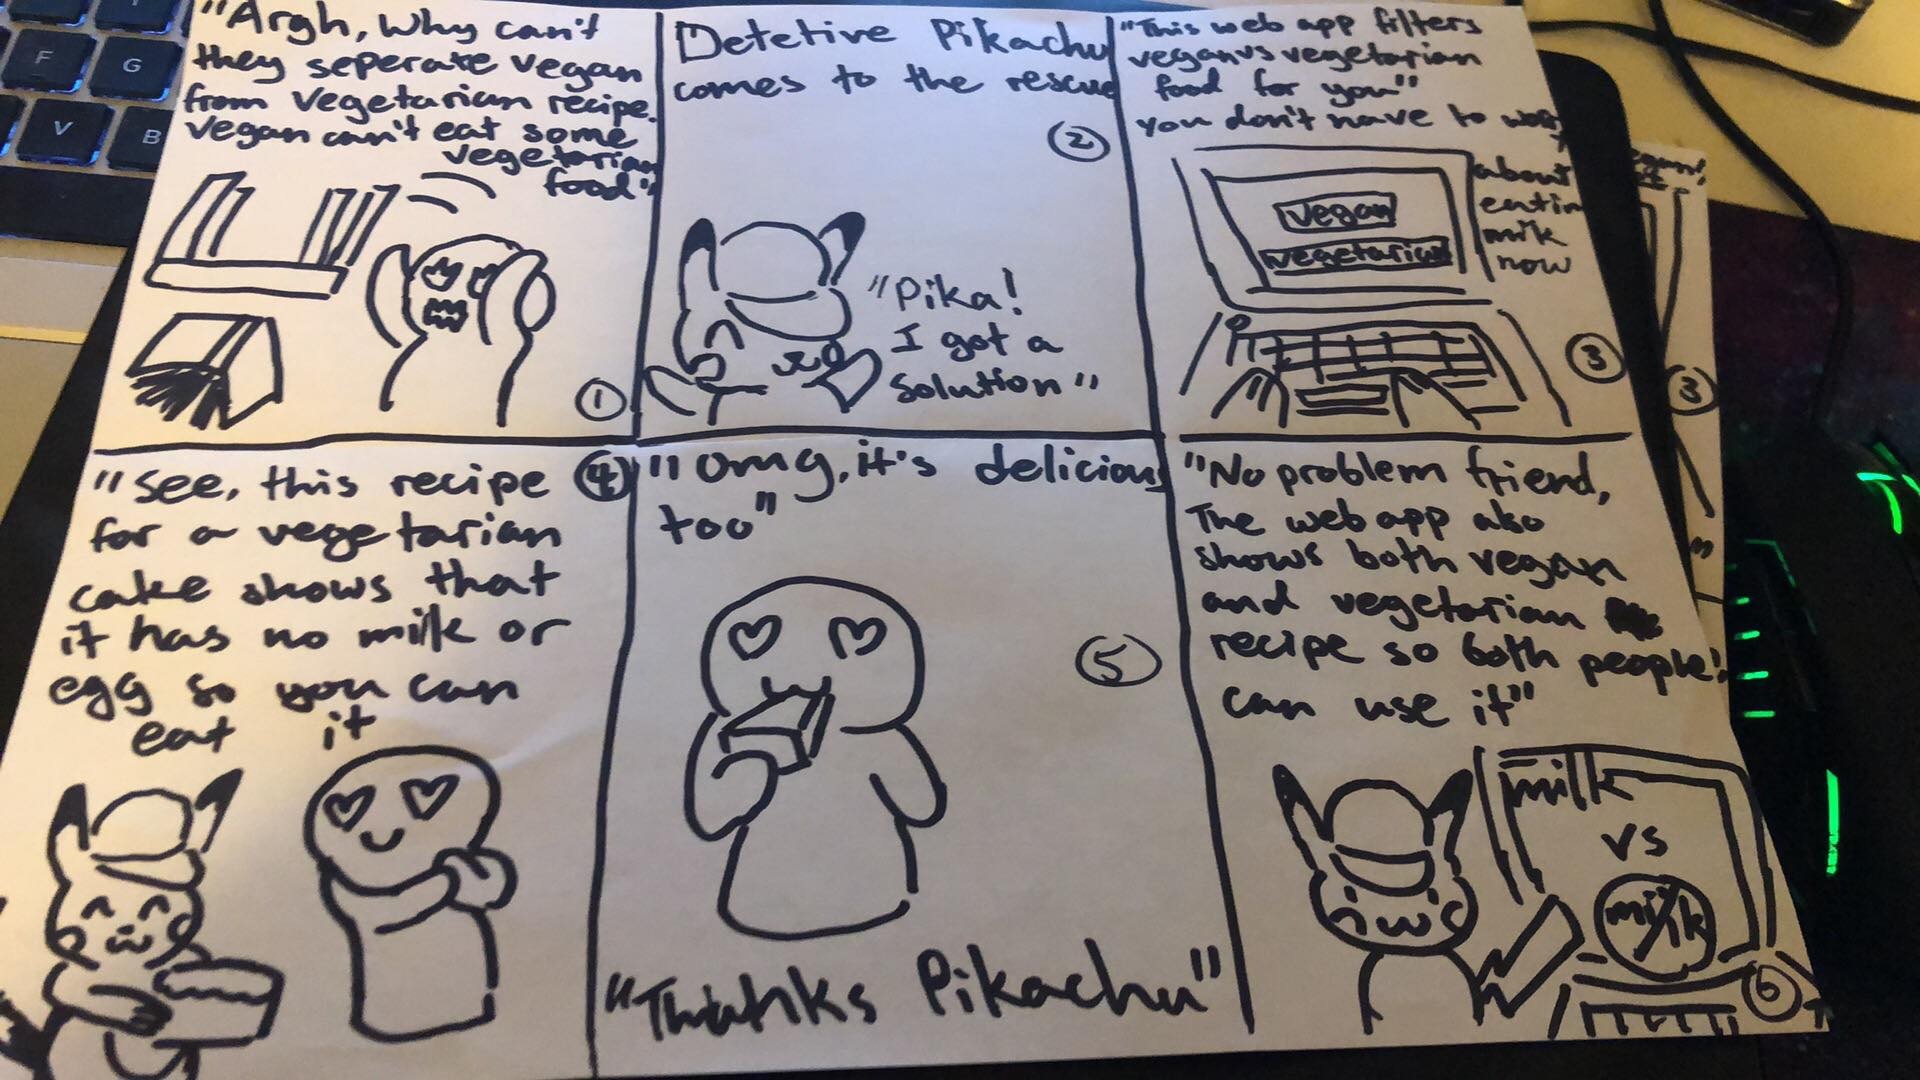 F
G
V
B
"Argh, Why can't
they seperate vegan
from Vegetarian recipe.
Vegan can't eat some
vegetarian
food"
1
Detetive Pikachu
comes to the rescue
2
"Pika!
I got a
solution"
"This web app filters
vegan vs vegetarian
food for you"
you don't have to worry
about
eatin
milk
now
vegan
vegetarian
3
3
"See, this recipe
for a vegetarian
cake shows that
it has no milk or
egg so you can
eat it
4
"Omg, it's delicious
too"
5
"Thanks Pikachu"
"No problem friend,
The web app also
shows both vegan
and vegetarian
recipe so both people
can use it"
milk
vs
milk
6